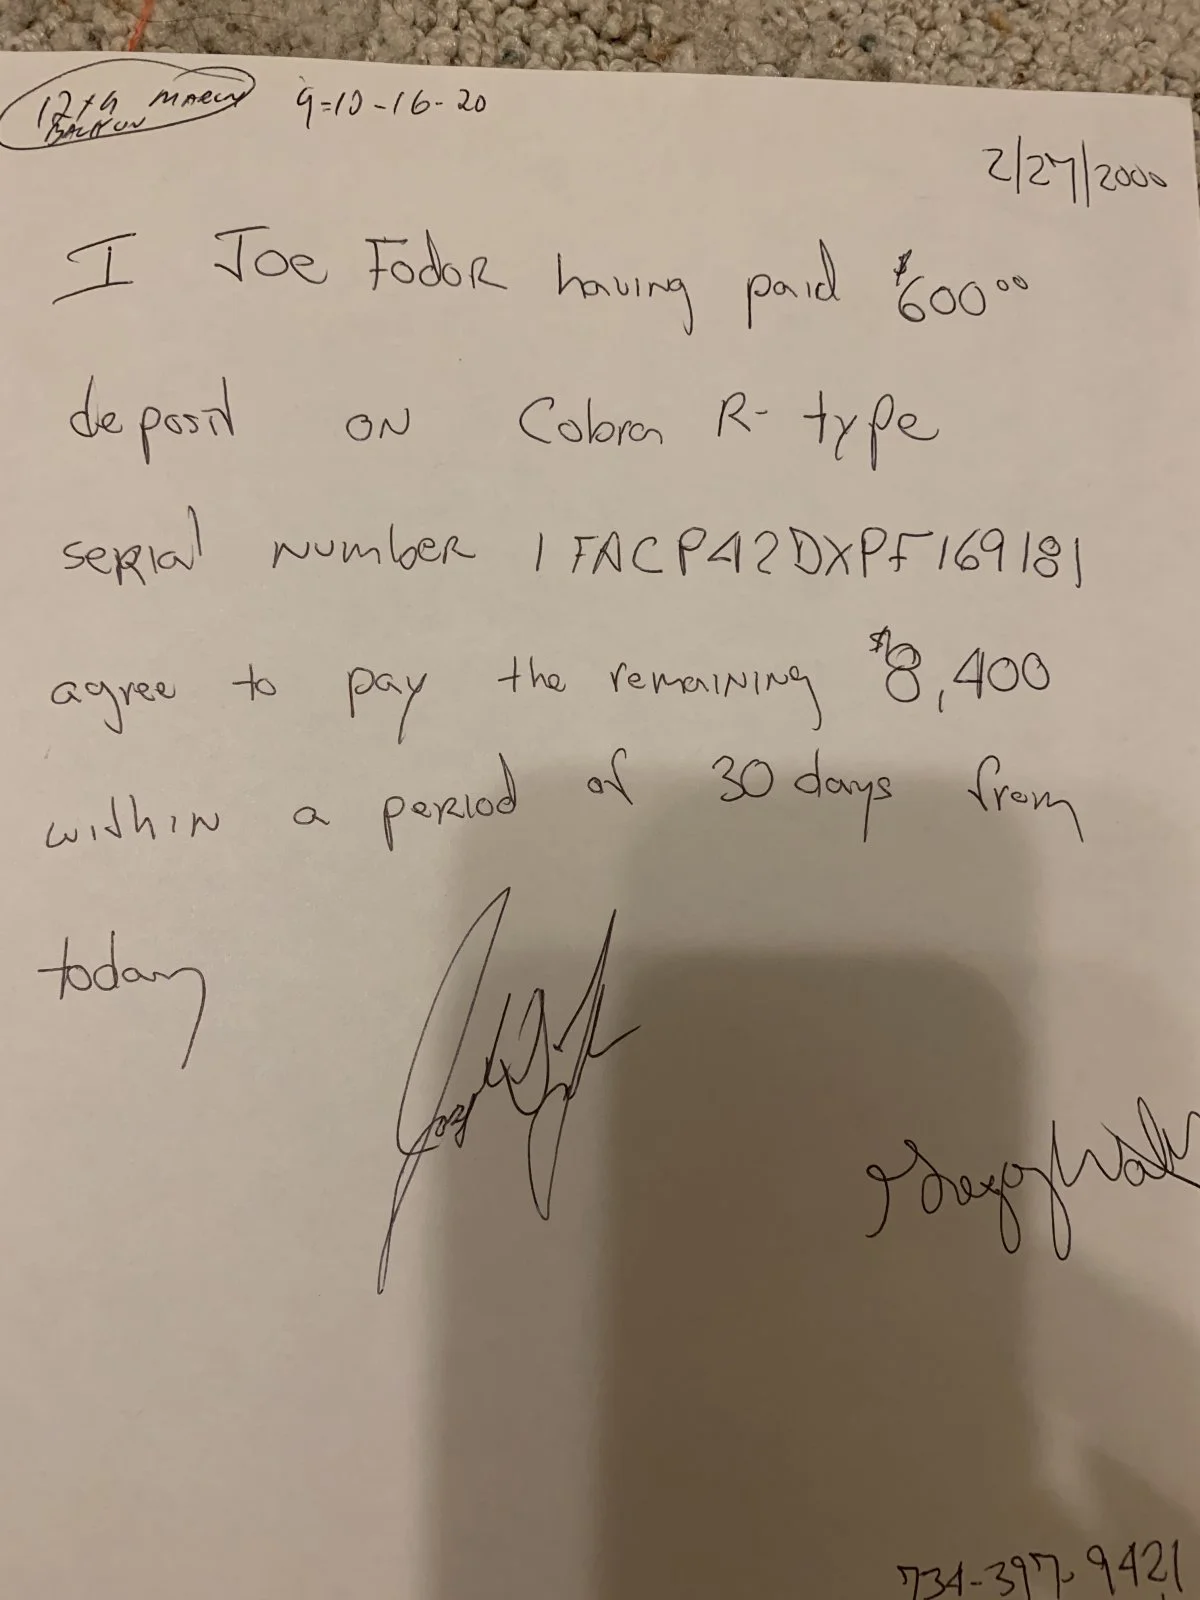 12th MARCH 9=10-16-20
BACK ON
2/27/2000
I Joe Fodor having paid $600.00
deposit on Cobra R-type
serial number 1FACP42DXPF169181
agree to pay the remaining $8,400
within a period of 30 days from
today
734-397-9421